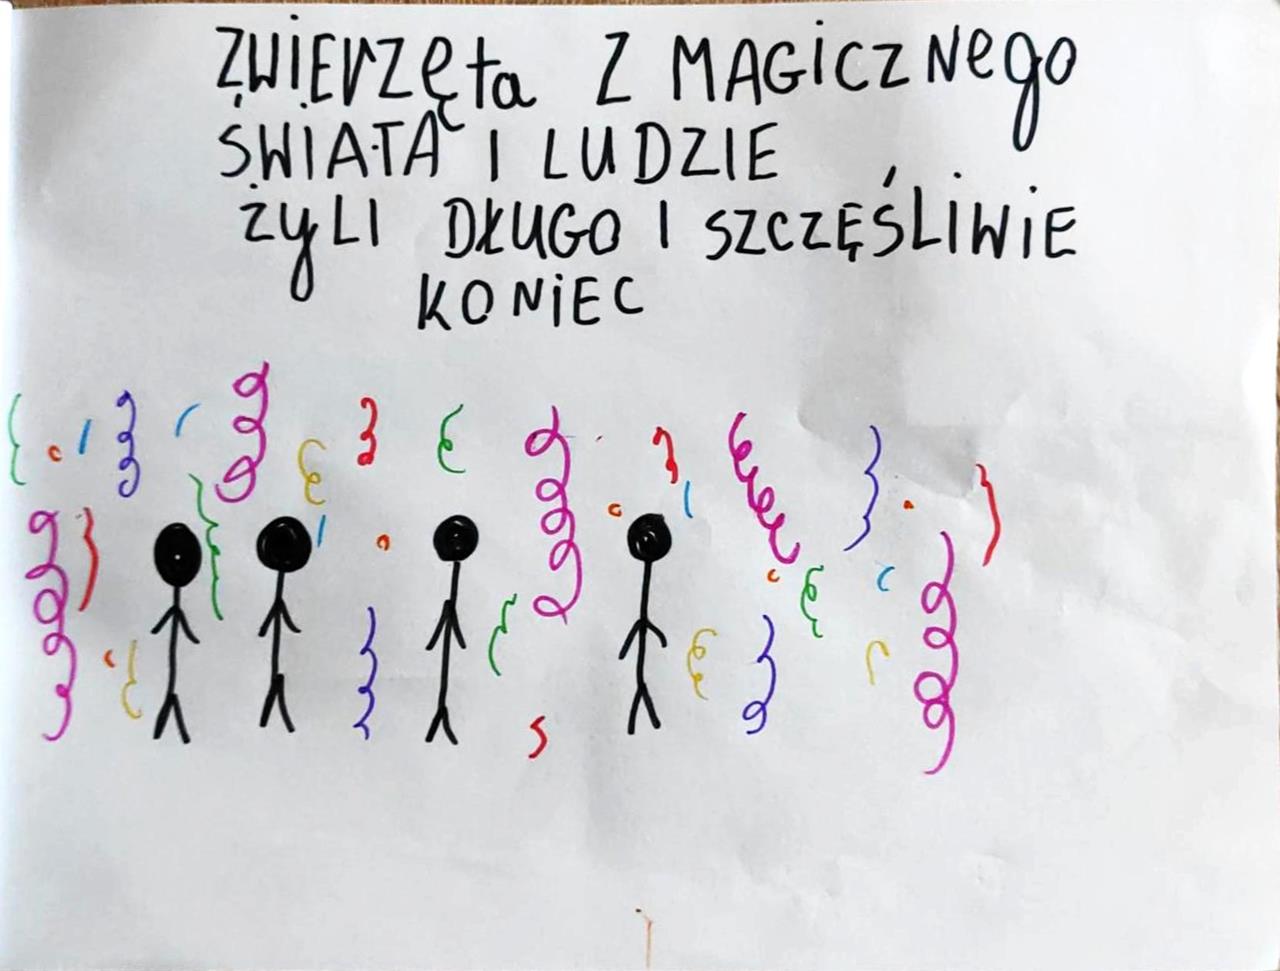 ZWIERZĘta Z MAGiCZNego
ŚWIATA I LUDZIE
ŻYLI DŁUGO I SZCZĘŚLiWiE
KONiEC